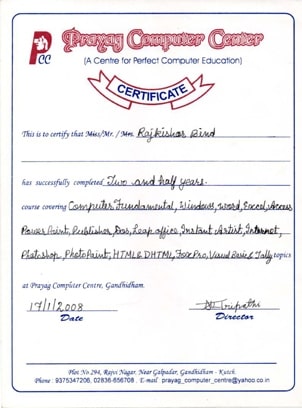 PCC
Prayag Computer Center
(A Centre for Perfect Computer Education)
CERTIFICATE
This is to certify that Miss/Mr. / Mrs. Rajkishor Bind
has successfully completed Two and half years.
course covering Computer Fundamental, Windows, Word, Excel, Access
PowerPoint, Publisher, Dos, Leap office, Instant Artist, Internet,
Photoshop, PhotoPaint, HTML & DHTML, FoxPro, Visual Basic & Tally topics
at Prayag Computer Centre, Gandhidham.
17/1/2008
Date
Tripathi
Director
Plot No 294, Rajvi Nagar, Near Galpadar, Gandhidham - Kutch.
Phone : 9375347206, 02836-656708 . E-mail prayag_computer_centre@yahoo.co.in